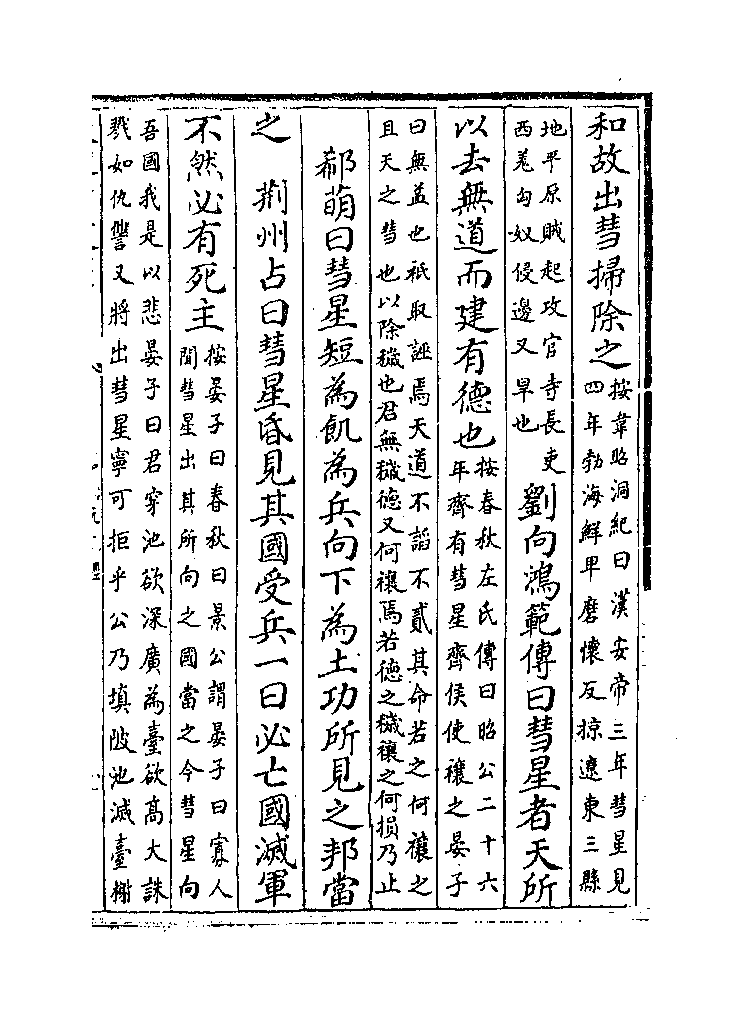 和故出彗掃除之
按韋昭洞紀曰漢安帝三年彗星見
四年勃海鮮卑磨懷反掠遼東三縣
地平原賊起攻官寺長吏
西羌匈奴侵邊又旱也
劉向鴻範傳曰彗星者天所
以去無道而建有德也
按春秋左氏傳曰昭公二十六
年齊有彗星齊侯使禳之晏子
曰無益也祇取誣焉天道不謟不貳其命若之何禳之
且天之彗也以除穢也君無穢德又何禳焉若德之穢禳之何損乃止
郗萌曰彗星短為飢為兵向下為土功所見之邦當
之 荆州占曰彗星昏見其國受兵一曰必亡國滅軍
不然必有死主
按晏子曰春秋曰景公謂晏子曰寡人
聞彗星出其所向之國當之今彗星向
吾國我是以悲晏子曰君穿池欲深廣為臺欲高大誅
戮如仇讐又將出彗星寧可拒乎公乃填陂池減臺榭